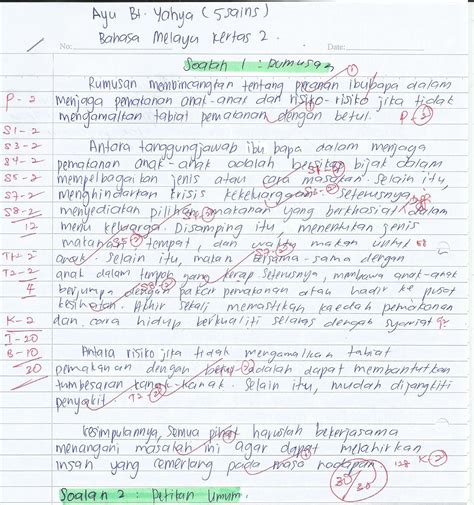 Ayu Bt. Yahya (5 sains)
Bahasa Melayu Kertas 2.
No:
Date:
Soalan 1 : Rumusan
Rumusan membincangkan tentang peranan ibubapa dalam
P - 2 menjaga pemakanan anak-anak dan risiko-risiko jika tidak
mengamalkan tabiat pemakanan dengan betul. P-2
S1-2 Antara tanggungjawab ibu bapa dalam menjaga
S3-2
S4-2 pemakanan anak-anak adalah bersikap bijak dalam
S5-2 mempelbagaikan jenis atau cara masakan. Selain itu,
S7-2 menghindarkan krisis kekeluargaan. Seterusnya,
S8-2 menyediakan pilihan makanan yang berkhasiat dalam
12 menu keluarga. Disamping itu, menentukan jenis
makanan, tempat, dan waktu makan untuk 58
TH-2 anak. Selain itu, makan bersama-sama dengan
T2-2 anak dalam tempoh yang kerap. Seterusnya, membawa anak-anak
4 berjumpa dengan pakar pemakanan atau hadir ke pusat
kesihatan. Akhir sekali memastikan kaedah pemakanan
K-2 dan cara hidup berkualiti selaras dengan syariat
I-20
B-10 Antara risiko jika tidak mengamalkan tabiat
30 pemakanan dengan betul adalah dapat membantutkan
tumbesaran kanak-kanak. Selain itu, mudah dijangkiti
penyakit. T2
Kesimpulannya, semua pihak haruslah bekerjasama
menangani masalah ini agar dapat melahirkan
insan yang cemerlang pada masa hadapan. 128 K-2
30/30
Soalan 2 : Petikan Umum.